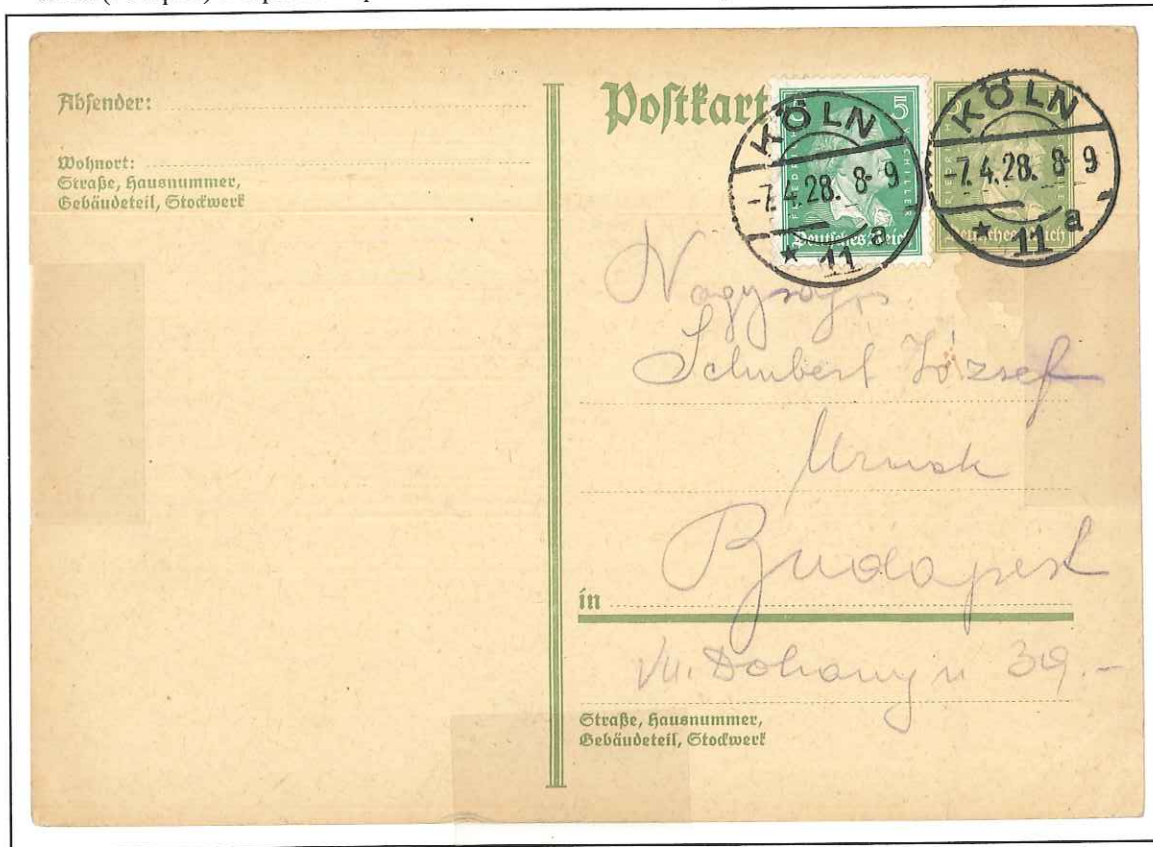 Absender:
Wohnort:
Straße, Hausnummer,
Gebäudeteil, Stockwerk
Postkart
5 5
FRIEDR SCHILLER
Deutsches Reich
KÖLN
-7.4.28. 8-9
* 11 a
Deutsches Reich
KÖLN
-7.4.28. 8-9
* 11 a
Schubert József
Urnak
Budapest
in
VII. Dohany u 39.-
Straße, Hausnummer,
Gebäudeteil, Stockwerk